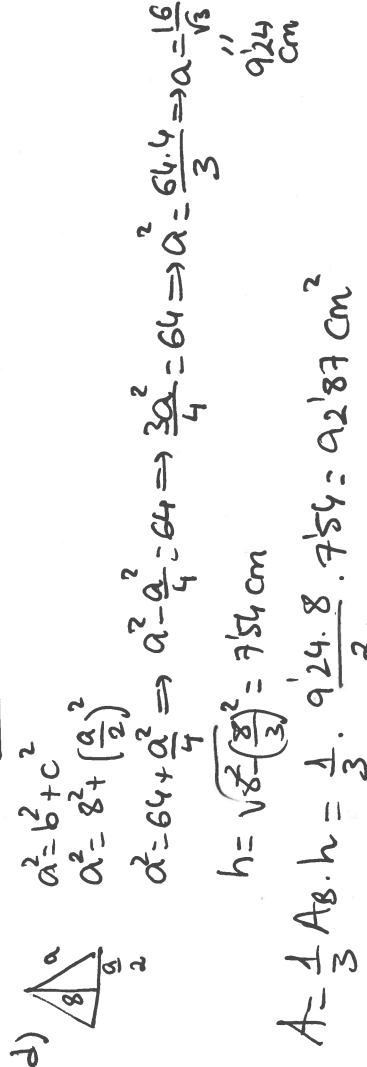 d)
8 a
a/2
a² = b² + c²
a² = 8² + (a/2)²
a² = 64 + a²/4 ⇒ a² - a²/4 = 64 ⇒ 3a²/4 = 64 ⇒ a² = 64.4/3 ⇒ a = 16/√3
"
9'24
cm
h = √(8² - (8/3)²) = 7'54 cm
A = 1/3 A_B . h = 1/3 . 9'24.8/2 . 7'54 = 92'87 cm²